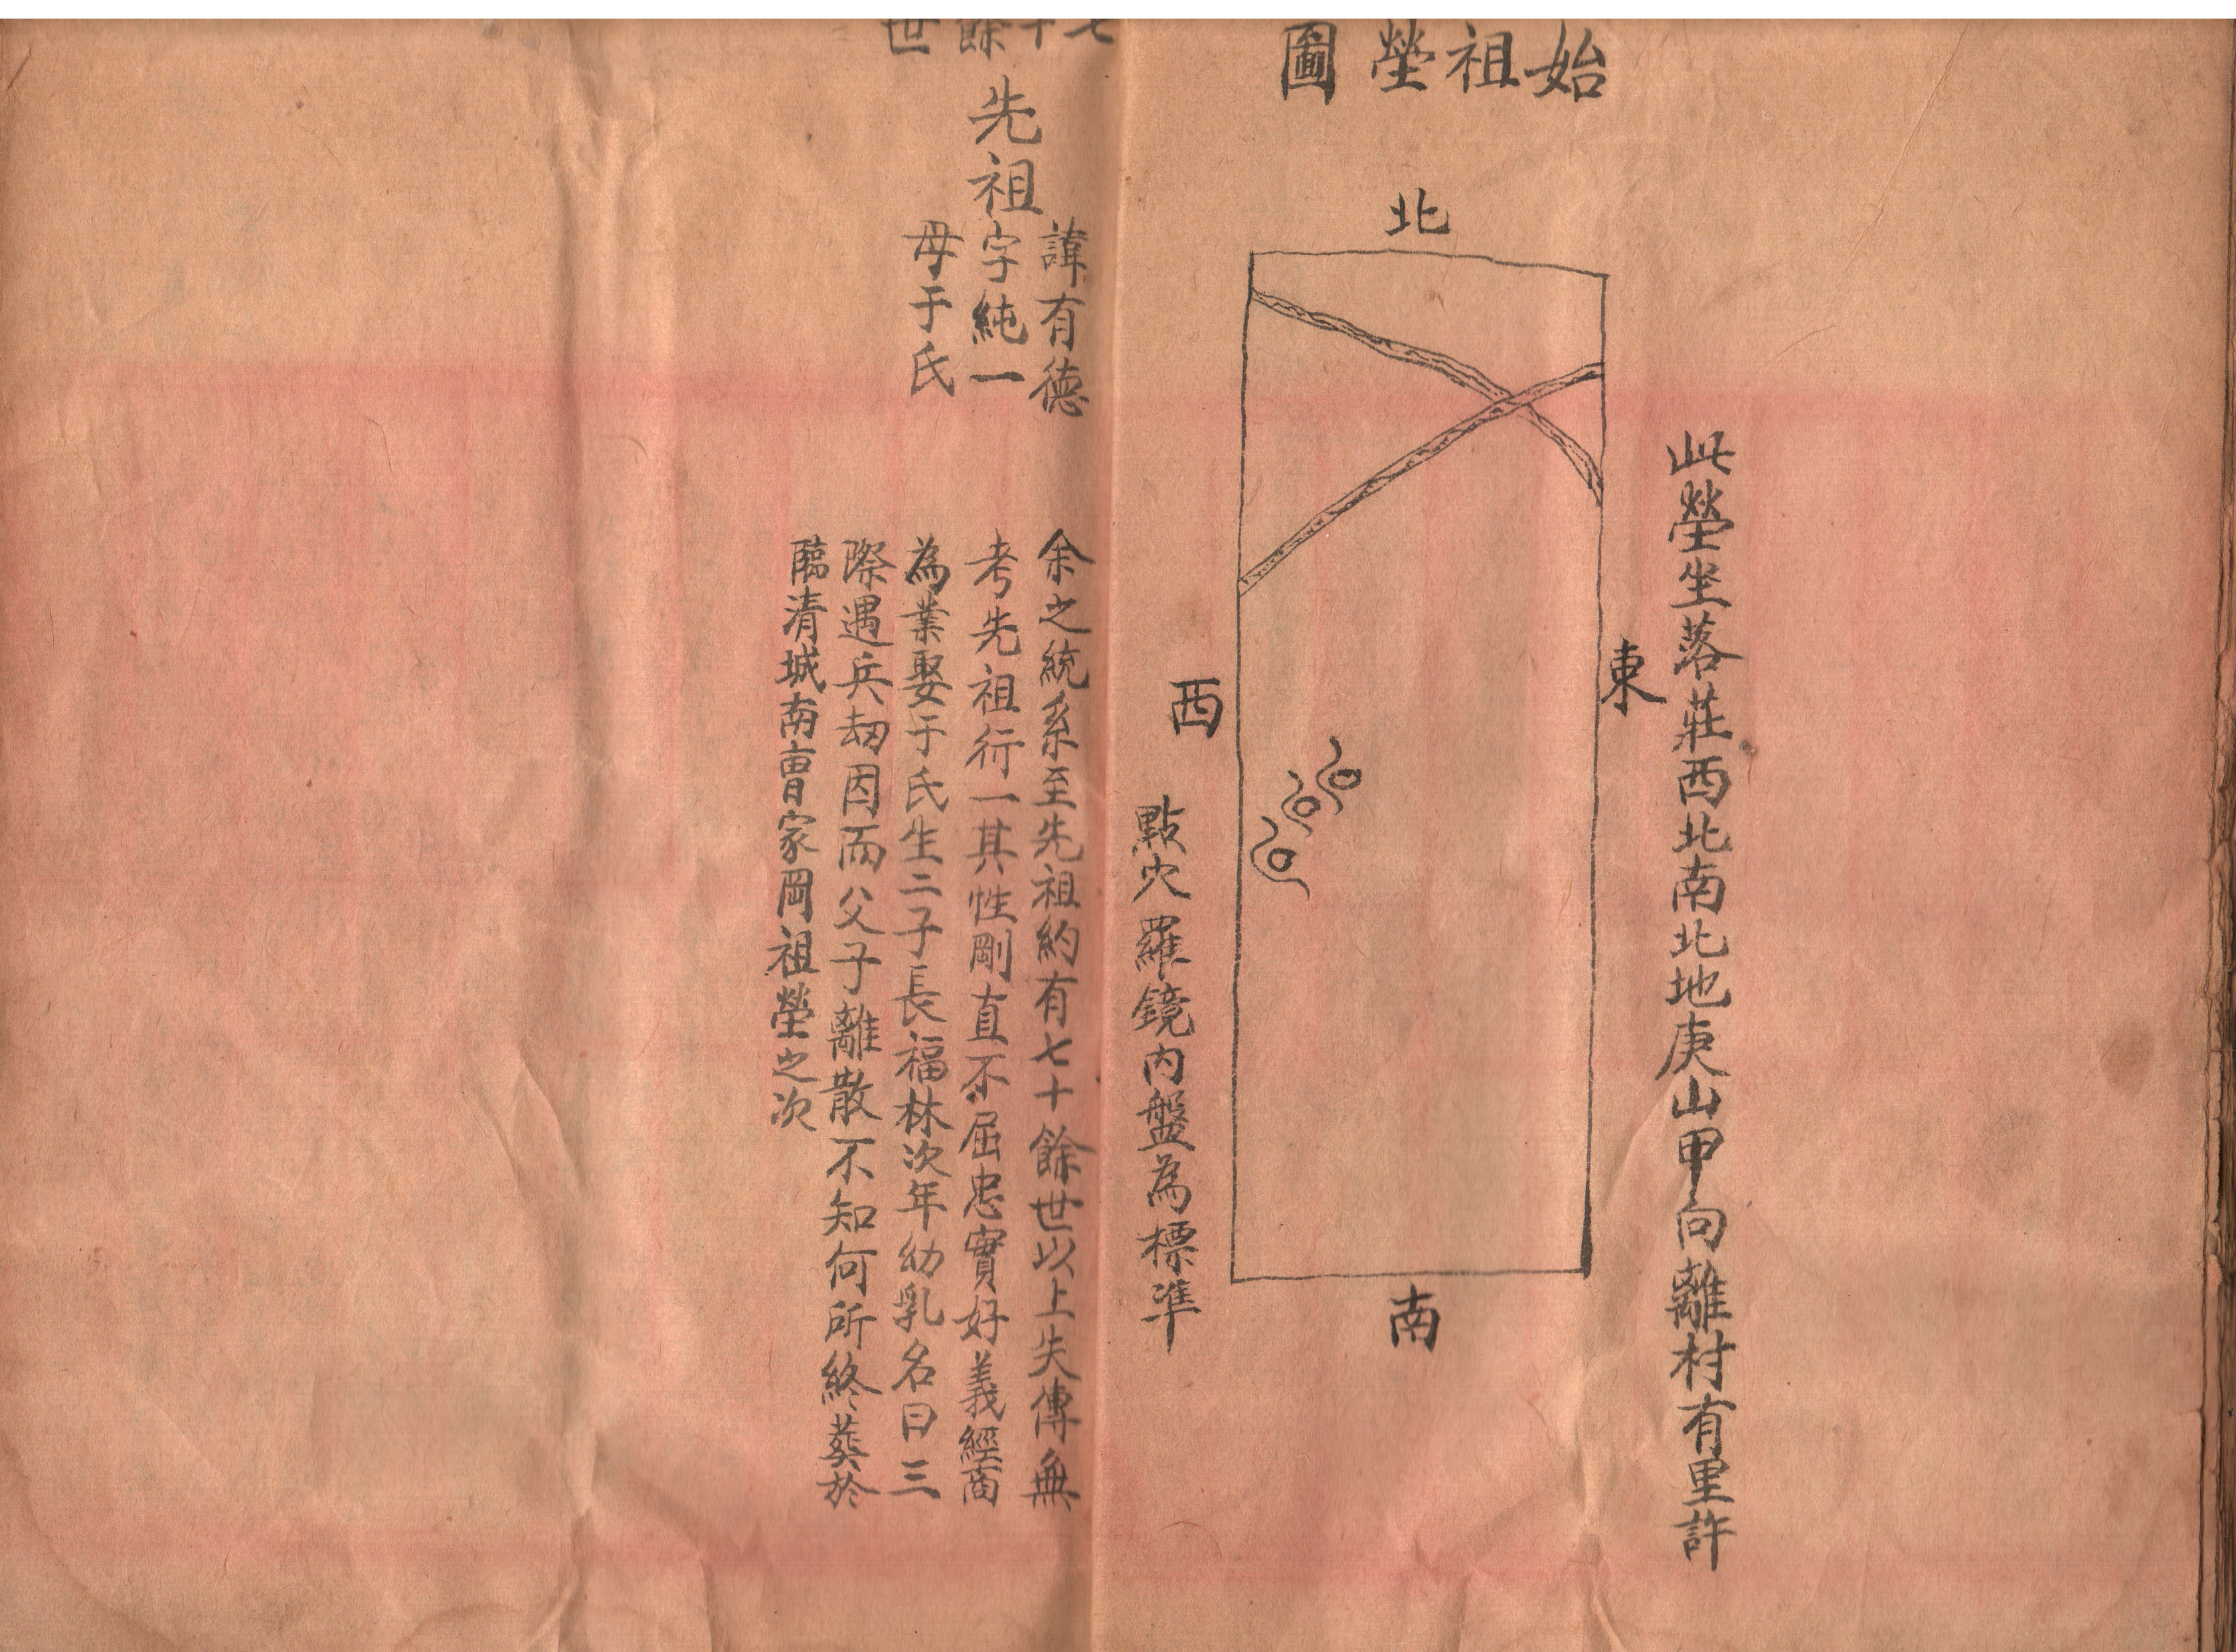 始祖塋圖
此塋坐落莊西北南北地庚山甲向離村有里許
北
東
西
南
點穴羅鏡内盤為標準
七十餘世
先祖
諱有德
字純一
母于氏
余之統系至先祖約有七十餘世以上失傳無
考先祖行一其性剛直不屈忠實好義經商
為業娶于氏生二子長福林次年幼乳名曰三
際遇兵刼因而父子離散不知何所終葬於
臨清城南曺家岡祖塋之次